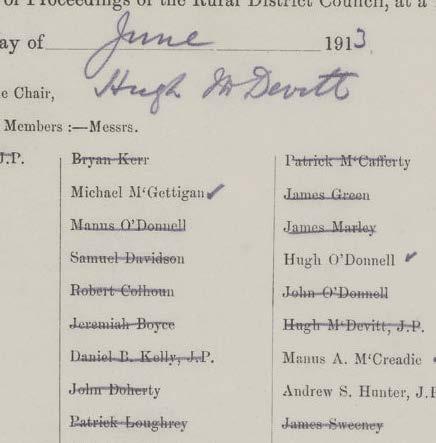 of Proceedings of the Rural District Council, at a
ay of June 1913
e Chair, Hugh McDevitt
Members :—Messrs.
J.P.
Bryan Kerr
Michael M‘Gettigan ✓
Manus O'Donnell
Samuel Davidson
Robert Colhoun
Jeremiah Boyce
Daniel B. Kelly, J.P.
John Doherty
Patrick Loughrey
Patrick M‘Cafferty
James Green
James Marley
Hugh O'Donnell ✓
John O'Donnell
Hugh M‘Devitt, J.P.
Manus A. M‘Creadie
Andrew S. Hunter, J.P
James Sweeney